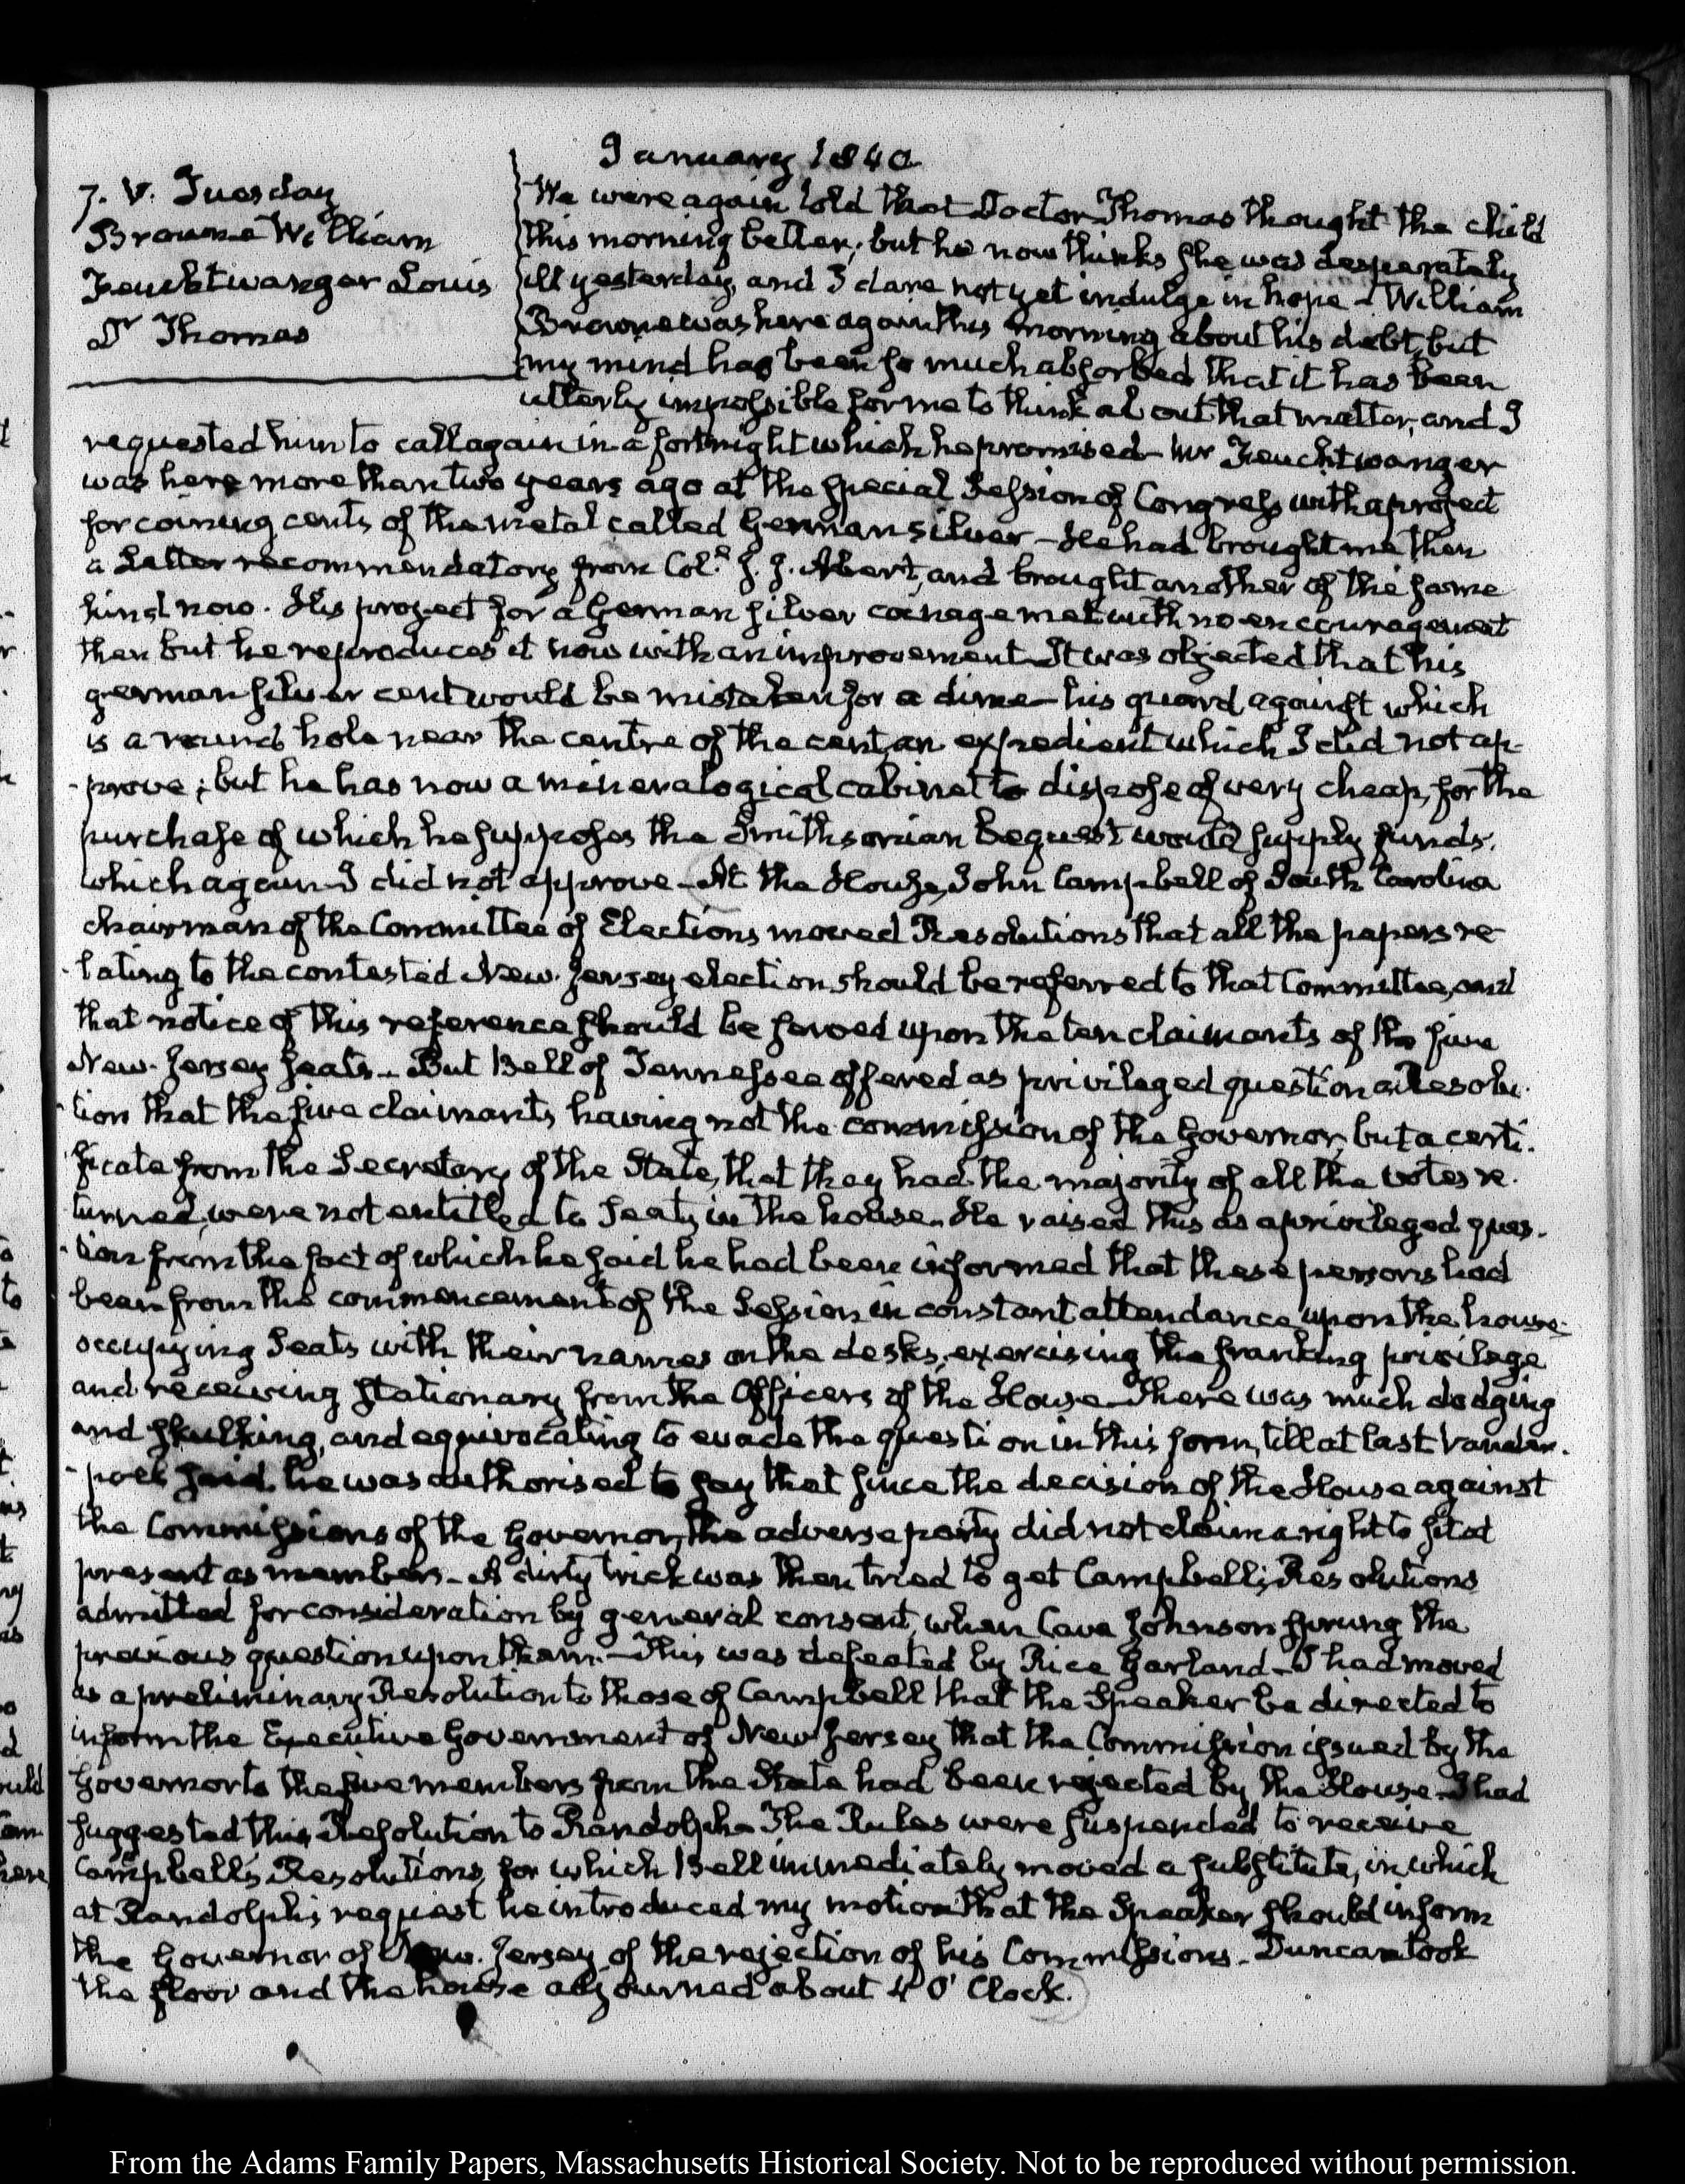 January 1840
7. V. Tuesday
Browne William
Feuchtwanger Louis
Dr Thomas
We were again told that Doctor Thomas thought the child
this morning better; but he now thinks she was desperately
ill yesterday, and I dare not yet indulge in hope – William
Browne was here again this morning about his debt, but
my mind has been so much absorbed that it has been
utterly impossible for me to think about that matter, and I
requested him to call again in a fortnight which he promised – Mr Feuchtwanger
was here more than two years ago at the special Session of Congress with a project
for coining cents of the metal called German silver – He had brought me then
a Letter recommendatory from Col.l J. J. Abert, and brought another of the same
kind now. His project for a German silver coinage met with no encouragement
then but he reproduces it now with an improvement – It was objected that his
german silver cent would be mistaken for a dime – his guard against which
is a round hole near the centre of the cent, an expedient which I did not ap-
-prove; but he has now a mineralogical cabinet to dispose of very cheap, for the
purchase of which he supposes the Smithsonian bequest would supply funds.
which again I did not approve – At the House, John Campbell of South Carolina
chairman of the Committee of Elections moved Resolutions that all the papers re-
-lating to the contested New-Jersey election should be referred to that Committee, and
that notice of this reference should be served upon the ten claimants of the five
New-Jersey seats – But Bell of Tennessee offered as privileged question a Resolu-
-tion that the five claimants, having not the commission of the Governor, but a certi-
-ficate from the Secretary of the State, that they had the majority of all the votes re-
turned, were not entitled to Seats in the house. He raised this as a privileged ques-
-tion from the fact of which he said he had been informed that these persons had
been from the commencement of the Session in constant attendance upon the house
occupying Seats with their names on the desks, exercising the franking privilege
and receiving stationary from the Officers of the House – There was much dodging
and skulking, and equivocating to evade the question in this form, till at last Vander-
-poel said he was authorised to say that since the decision of the House against
the Commissions of the Governor, the adverse party did not claim a right to sit at
present as members – A dirty trick was then tried to get Campbell's Resolutions
admitted for consideration by general consent, when Cave Johnson sprung the
previous question upon them – This was defeated by Rice Garland – I had moved
as a preliminary Resolution to those of Campbell that the Speaker be directed to
inform the Executive Government of New Jersey that the Commission issued by the
Governor to the five members from the State had been rejected by the House – I had
suggested this Resolution to Randolph – The Rules were suspended to receive
Campbell's Resolutions, for which Bell immediately moved a substitute, in which
at Randolph's request he introduced my motion that the Speaker should inform
the Governor of New-Jersey of the rejection of his Commissions – Duncan took
the floor and the house adjourned about 4 O'Clock.
From the Adams Family Papers, Massachusetts Historical Society. Not to be reproduced without permission.